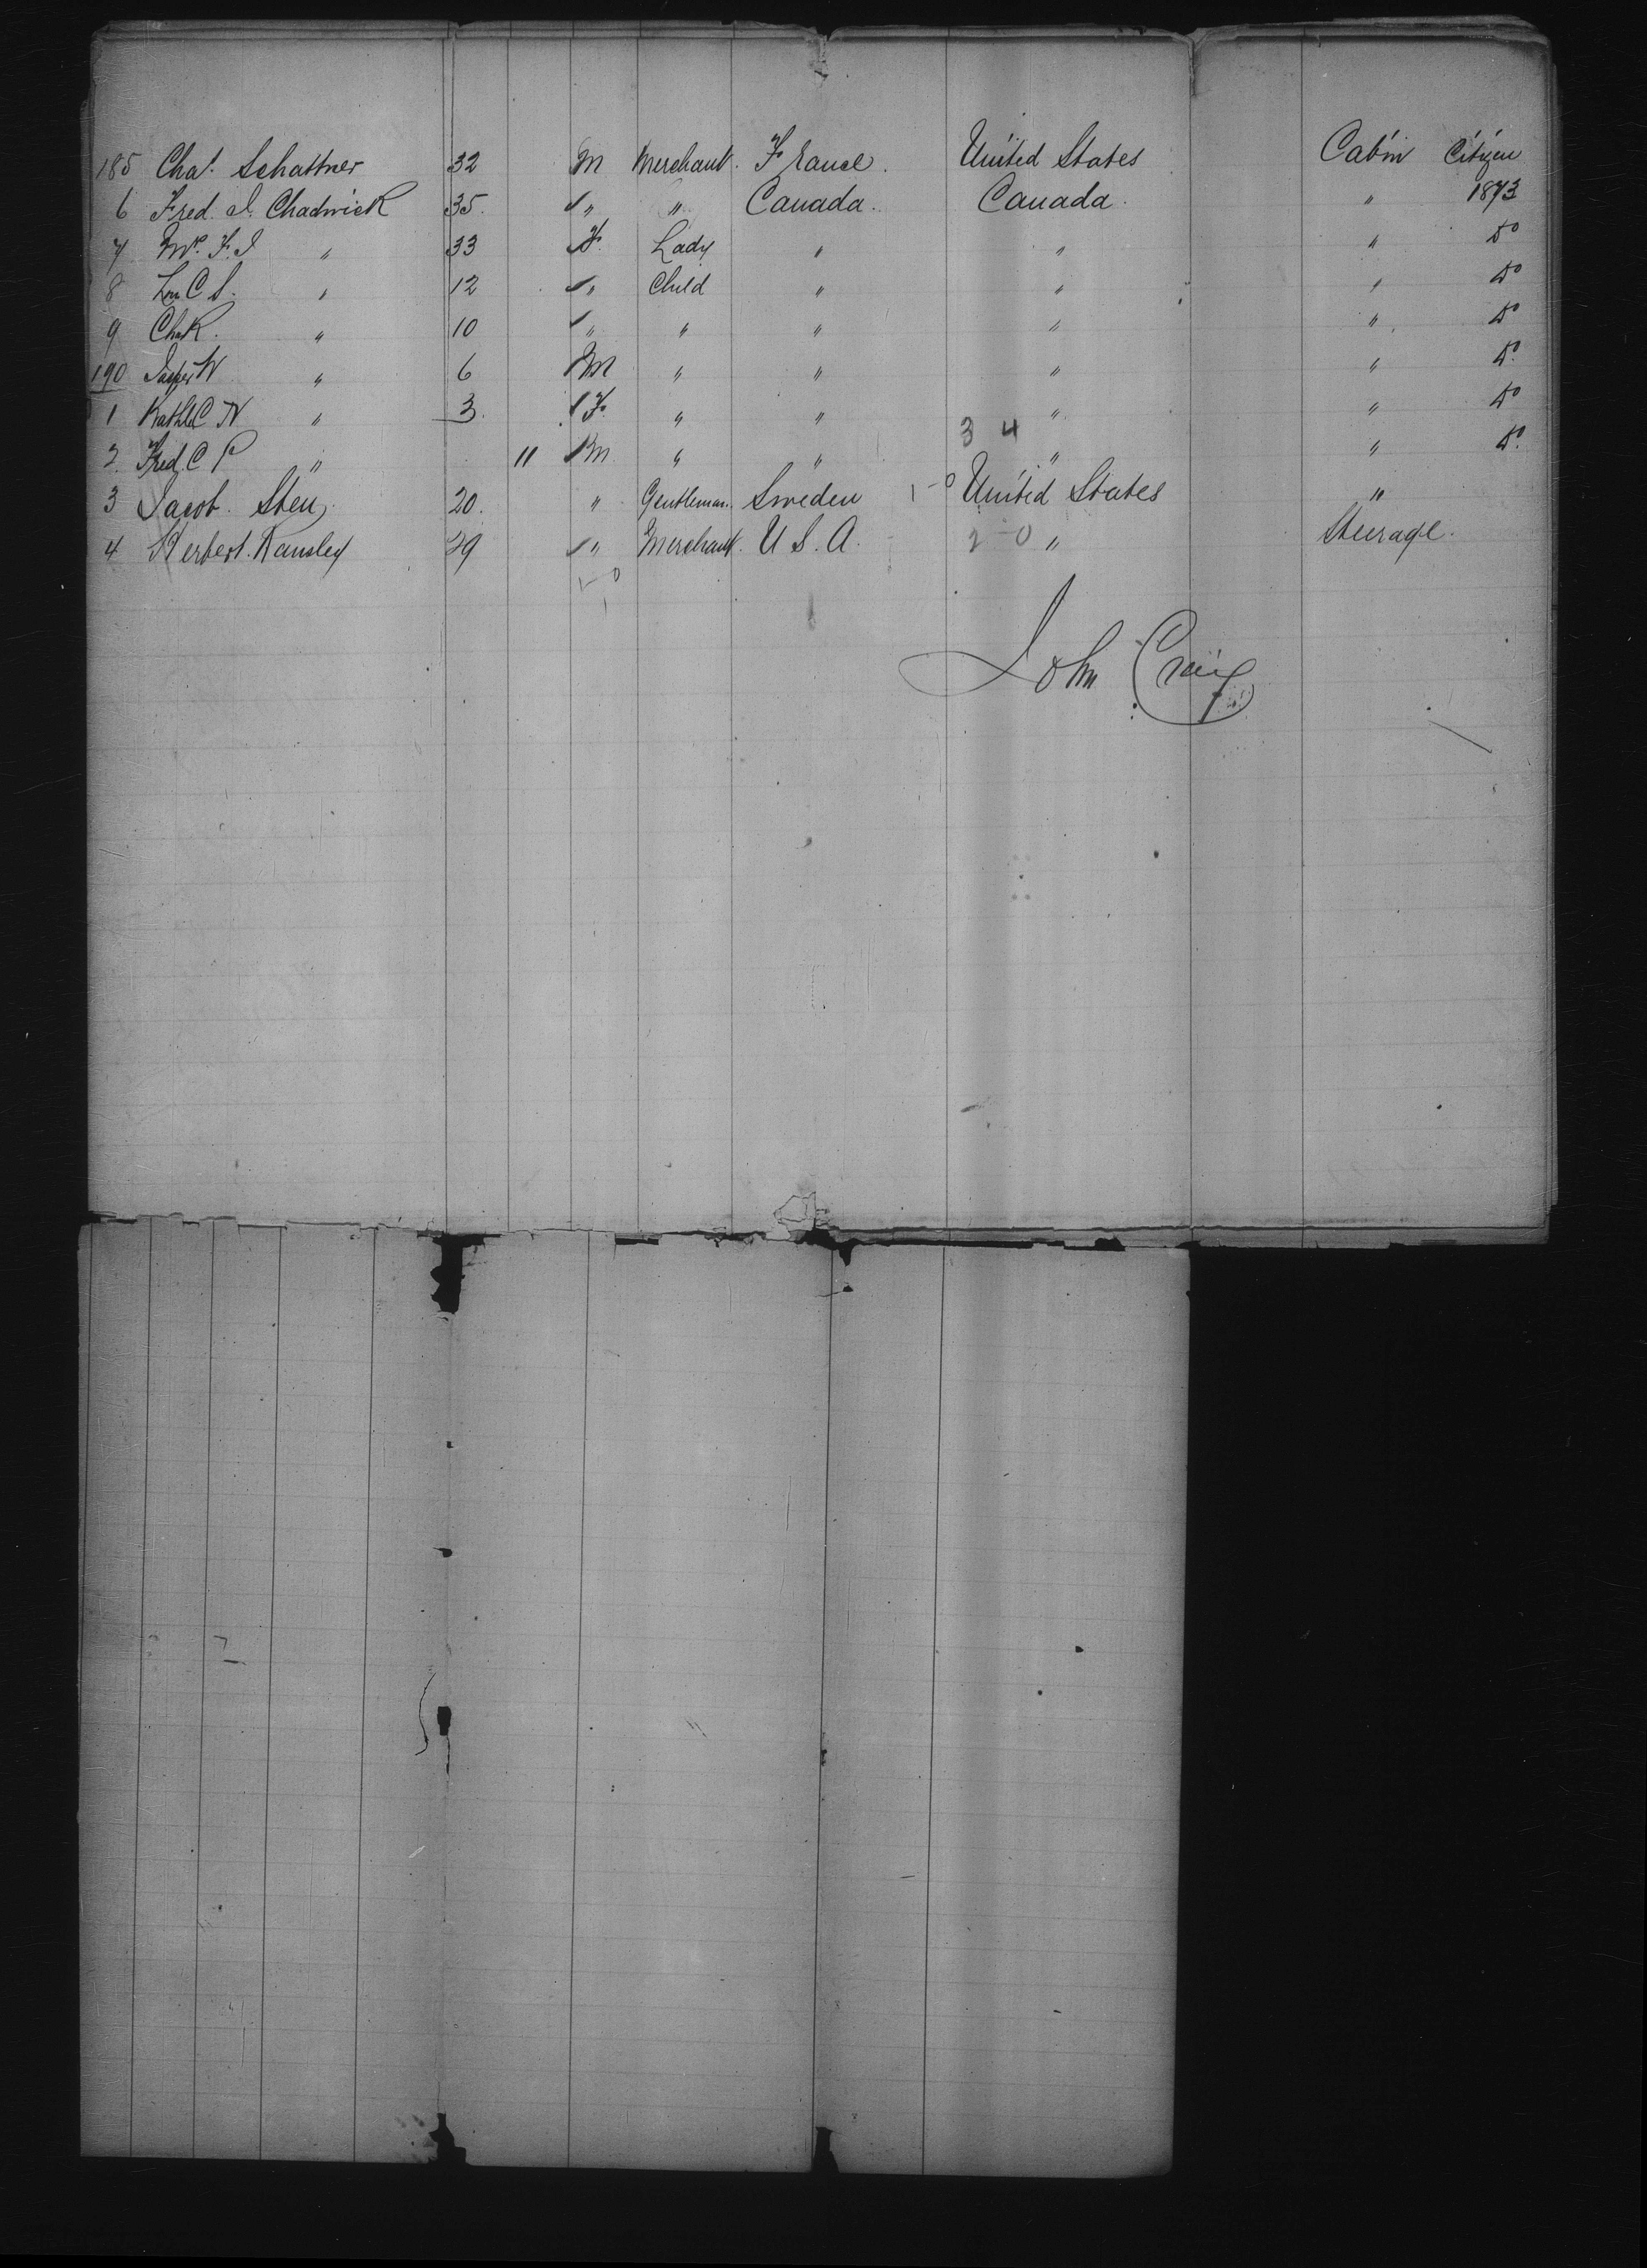 185 Chas. Schattner 32 M Merchant. France. United States Cabin Citizen
6 Fred. J. Chadwick 35. " " Canada. Canada. " 1873
7 Mrs. F. J " 33 F. Lady " " " Do
8 C S. " 12 " Child " " " Do
9 " 10 " " " " " Do
190 Jasper W " 6 M " " " " Do.
1 N " 3. F. " " " " Do
2. Fred. C P " 11 M. " " " " Do.
3 4
3 Jacob. Sten. 20. " Gentleman. Sweden 1-0 United States "
4 Herbert. Kansley 29 " Merchant. U. S. A. 2-0 " Steerage.
John Craig